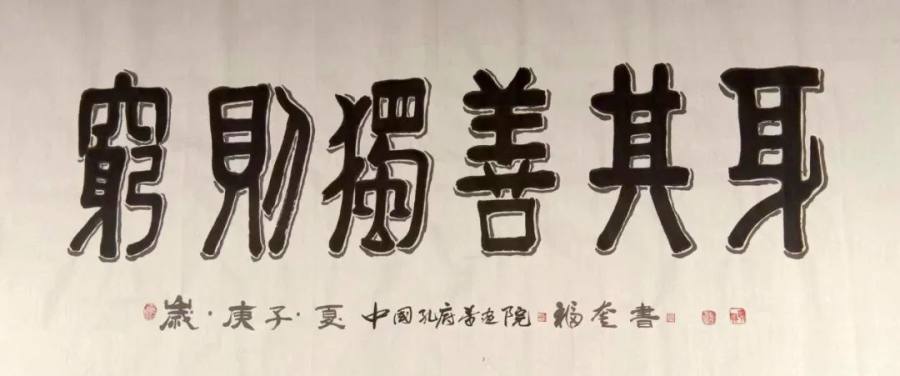 窮則獨善其身
歲·庚子·夏 中國孔府書画院 福奎書